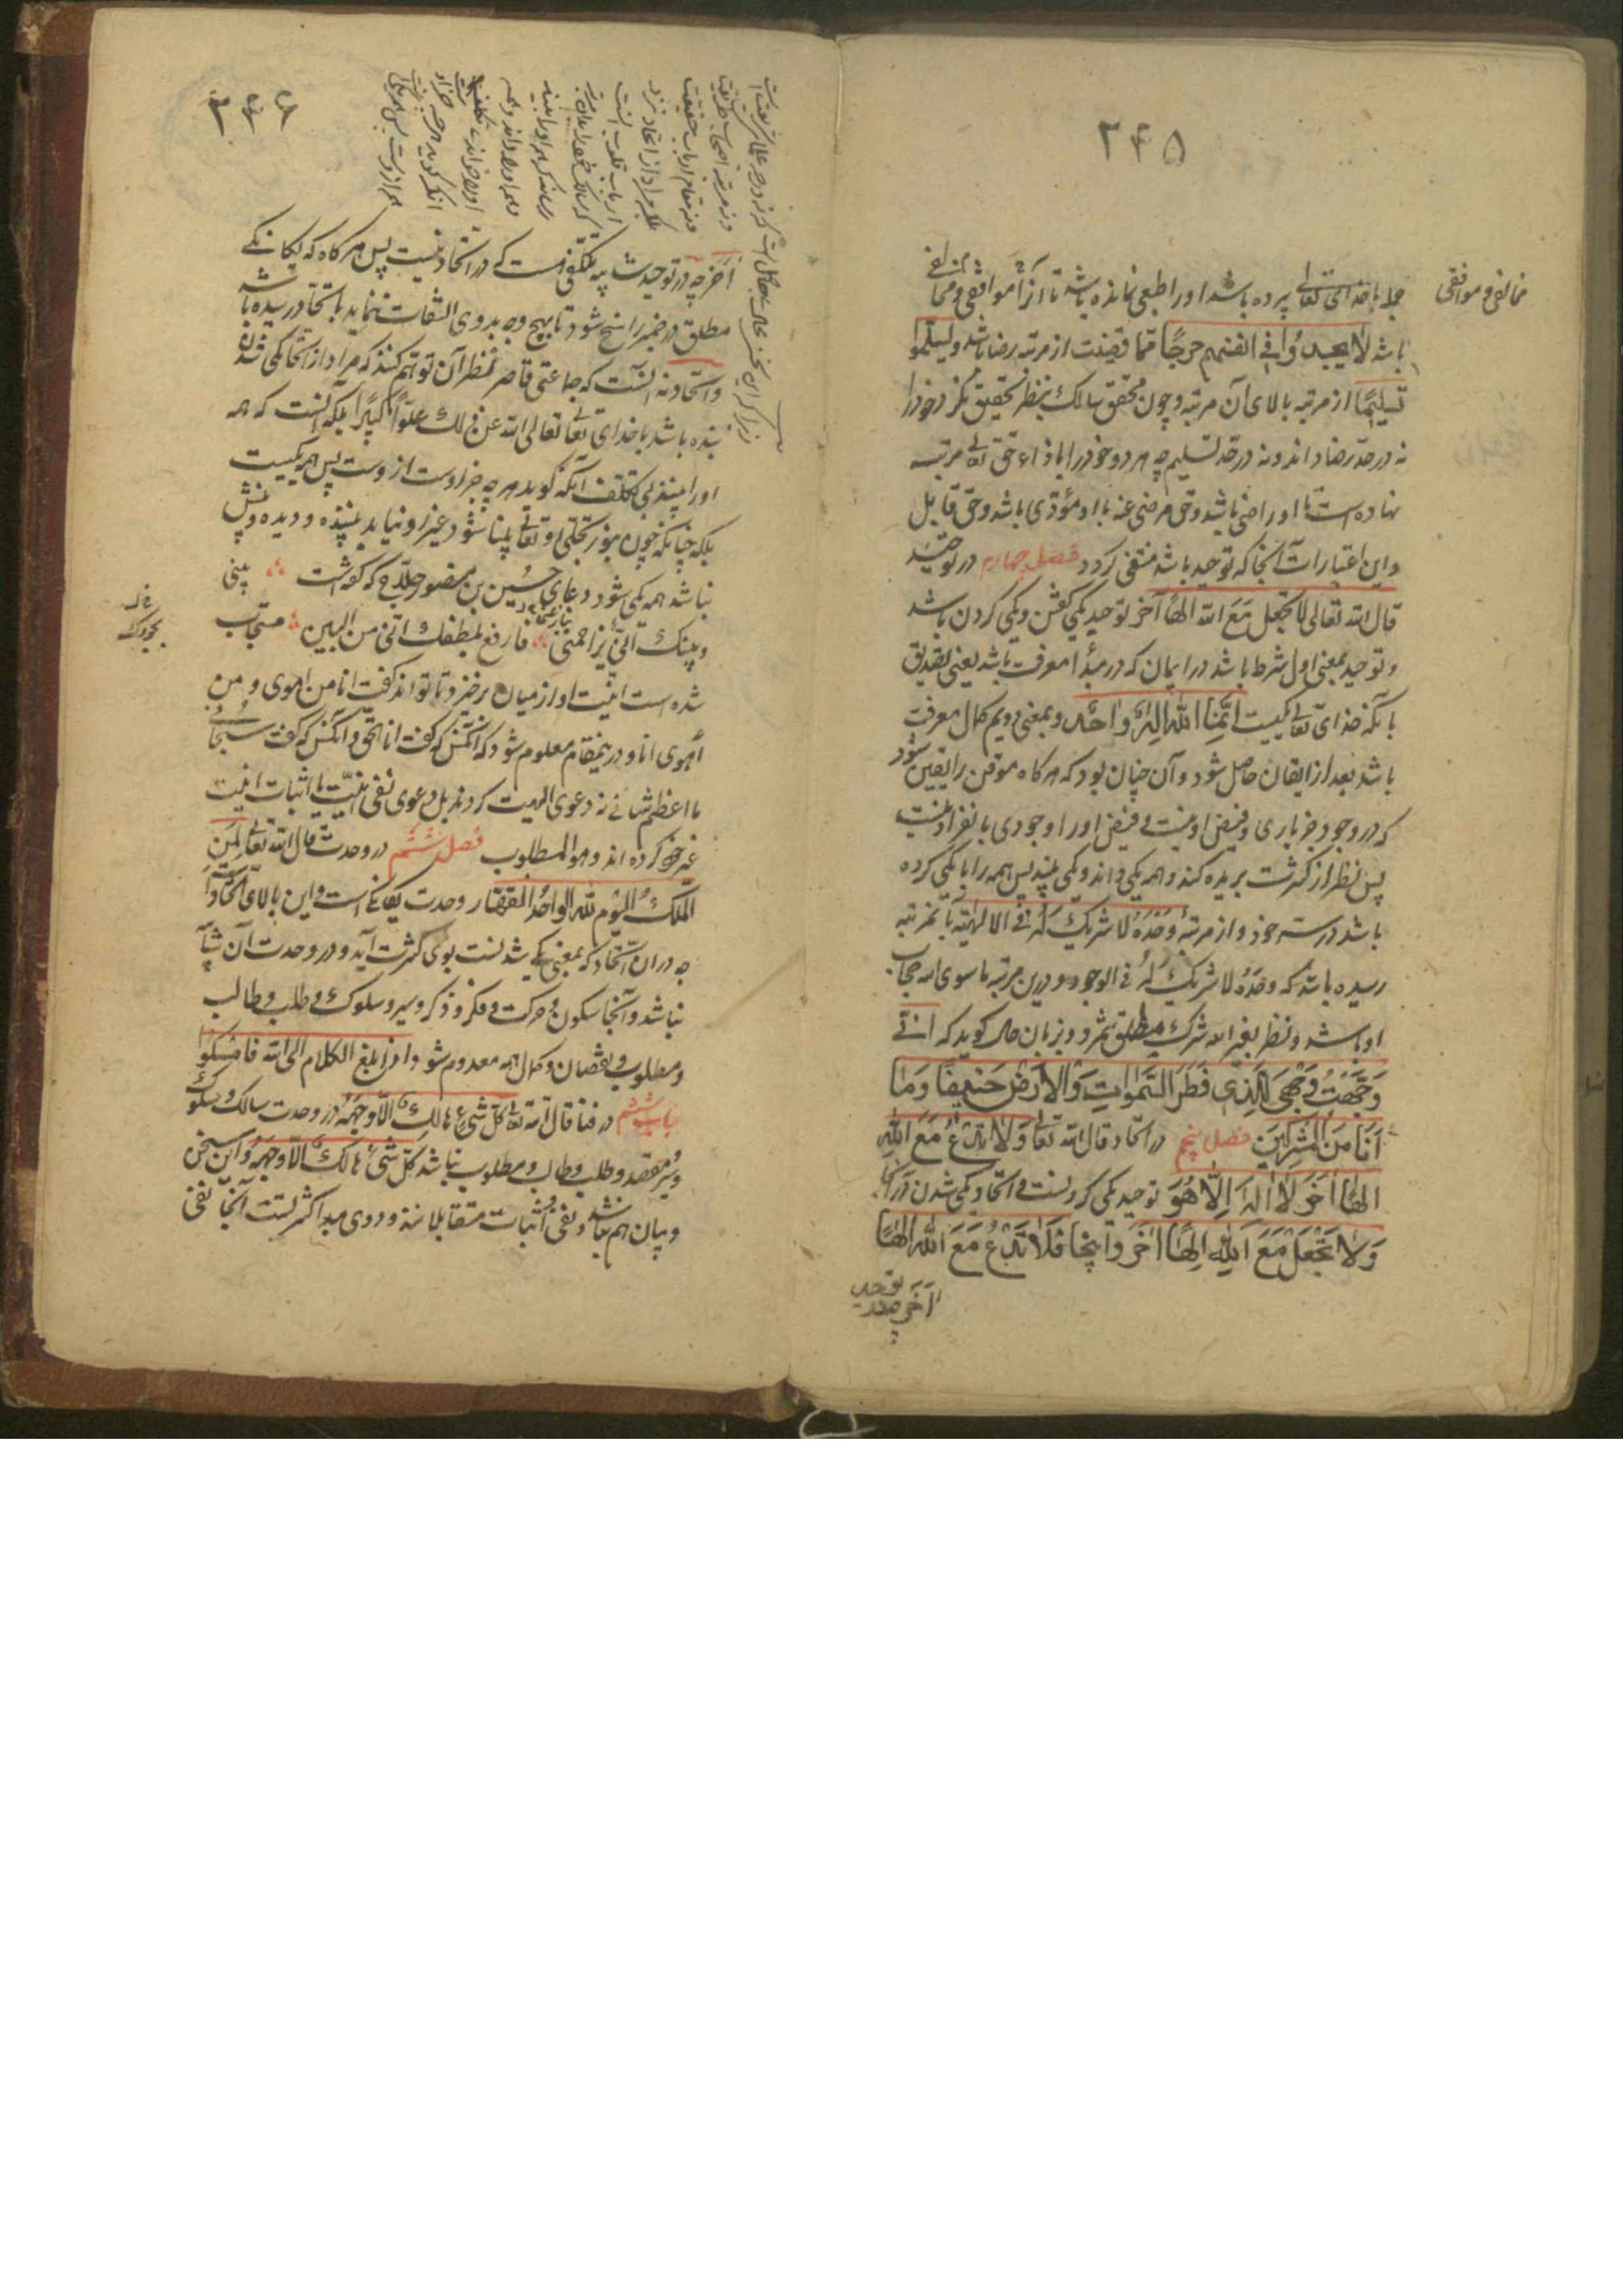 ۲۴۵
جمله با خدای تعالی پرده باشد و او را طبعی نمانده باشد تا آنرا موافقی و مخالفی
مخالفی و موافقی
باشد لا یجدوا فی انفسهم حرجًا مما قضیت از مرتبه رضا باشد و یسلموا
تسلیمًا از مرتبه بالای آن مرتبه و چون محقق سالک بنظر تحقیق نگرد خود را
نه در حد رضا داند و نه در حد تسلیم چه هر دو خود را با ذاء حق تعالی مرتبه
نهاده است تا او راضی باشد و حق مرضی عنه با او مؤدی باشد و حق قابل
و این اعتبارات آنجا که توحید باشد منتفی گردد فصل چهارم در توحید
قال الله تعالی لا تجعل مع الله الهًا آخر توحید یکی گفتن و یکی کردن باشد
و توحید بمعنی اول شرط باشد در ایمان که در مبدأ معرفت باشد یعنی تصدیق
بآنکه خدای تعالی یکیست انما الله اله واحد و بمعنی دویم کمال معرفت
باشد بعد از ایقان حاصل شود و آن چنان بود که هر گاه موقن را یقین شود
که در وجود جز باری و فیض او نیست و فیض او را وجودی بانفراد نیست
پس نظر از کثرت بریده کند و همه یکی داند و یکی بیند پس همه را با یکی کرده
باشد در سر خود و از مرتبه وحده لا شریک له فی الالهیه بآن مرتبه
رسیده باشد که وحده لا شریک له فی الوجود و درین مرتبه ما سوی الله حجاب
او باشد و نظر بغیر الله شرک مطلق شمرد و بزبان حال گوید که انی
وَجَّهْتُ وَجْهِیَ لِلَّذی فَطَرَ السَّمٰواتِ وَالْاَرْضَ حَنیفًا وَمٰا
اَنَا مِنَ الْمُشْرِکینَ فصل پنجم در اتحاد قال الله تعالی وَلٰا تَدْعُ مَعَ اللهِ
اِلٰهًا اٰخَرَ لٰا اِلٰهَ اِلّٰا هُوَ توحید یکی کردنست و اتحاد یکی شدن در آنجا
وَلٰا تَجْعَلْ مَعَ اللهِ اِلٰهًا اٰخَرَ و اینجا فَلٰا تَدْعُ مَعَ اللهِ اِلٰهًا
آخر چه در توحید
۲۴۶
آخر چه در توحید شائبه تکلفی هست که در اتحاد نیست پس هر گاه که یگانگی
مطلق در ضمیر راسخ شود تا بهیچ وجه بدوی التفات ننماید باتحاد رسیده باشد
و اتحاد نه آنست که جماعتی قاصر نظران توهم کنند که مراد از اتحاد یکی شدن
بنده باشد با خدای تعالی تعالی الله عن ذلک علوًّا کبیرًا بلکه آنست که همه
او را بینند بی تکلف آنکه گوید هر چه جز اوست ازوست پس همه یکیست
بلکه چنانکه چون بنور تجلی او تعالی بینا شود غیر او نیابد بیننده و دیده و بینش
نباشد همه یکی شود و دعای حسین بن منصور حلاج که گفته است بینی
وبینک انّی ینازعنی فارفع بلطفک انّی من البین مستجاب
شده است انیّت او از میان برخیزد تا تواند گفت انا من اهوی و من
اهوی انا و درین مقام معلوم شود که آنکس که گفت انا الحق و آنکس که گفت سبحانی
ما اعظم شانی نه دعوی الهیت کردند بل دعوی نفی انیّت با اثبات انیّت
غیر خود کرده اند و هو المطلوب فصل ششم در وحدت قال الله تعالی لمن
الملک الیوم لله الواحد القهار وحدت یگانگی است و این بالای اتحاد است
چه در آن اتحاد که بمعنی یکی شدنست بوی کثرت آید و در وحدت آن شائبه
نباشد و آنجا سکون و حرکت و فکر و ذکر و سیر و سلوک و طلب و طالب
و مطلوب و نقصان و کمال همه معدوم شود اذا بلغ الکلام الی الله فامسکوا
باب ششم در فنا قال الله تعالی کل شیء هالک الا وجهه در وحدت سالک و سلوک
و سیر و مقصد و طلب و طالب و مطلوب نباشد کل شیء هالک الا وجهه و این سخن
و بیان هم نباشد و نفی و اثبات متقابلانند و دوی مبدأ کثرتست آنجا نفی